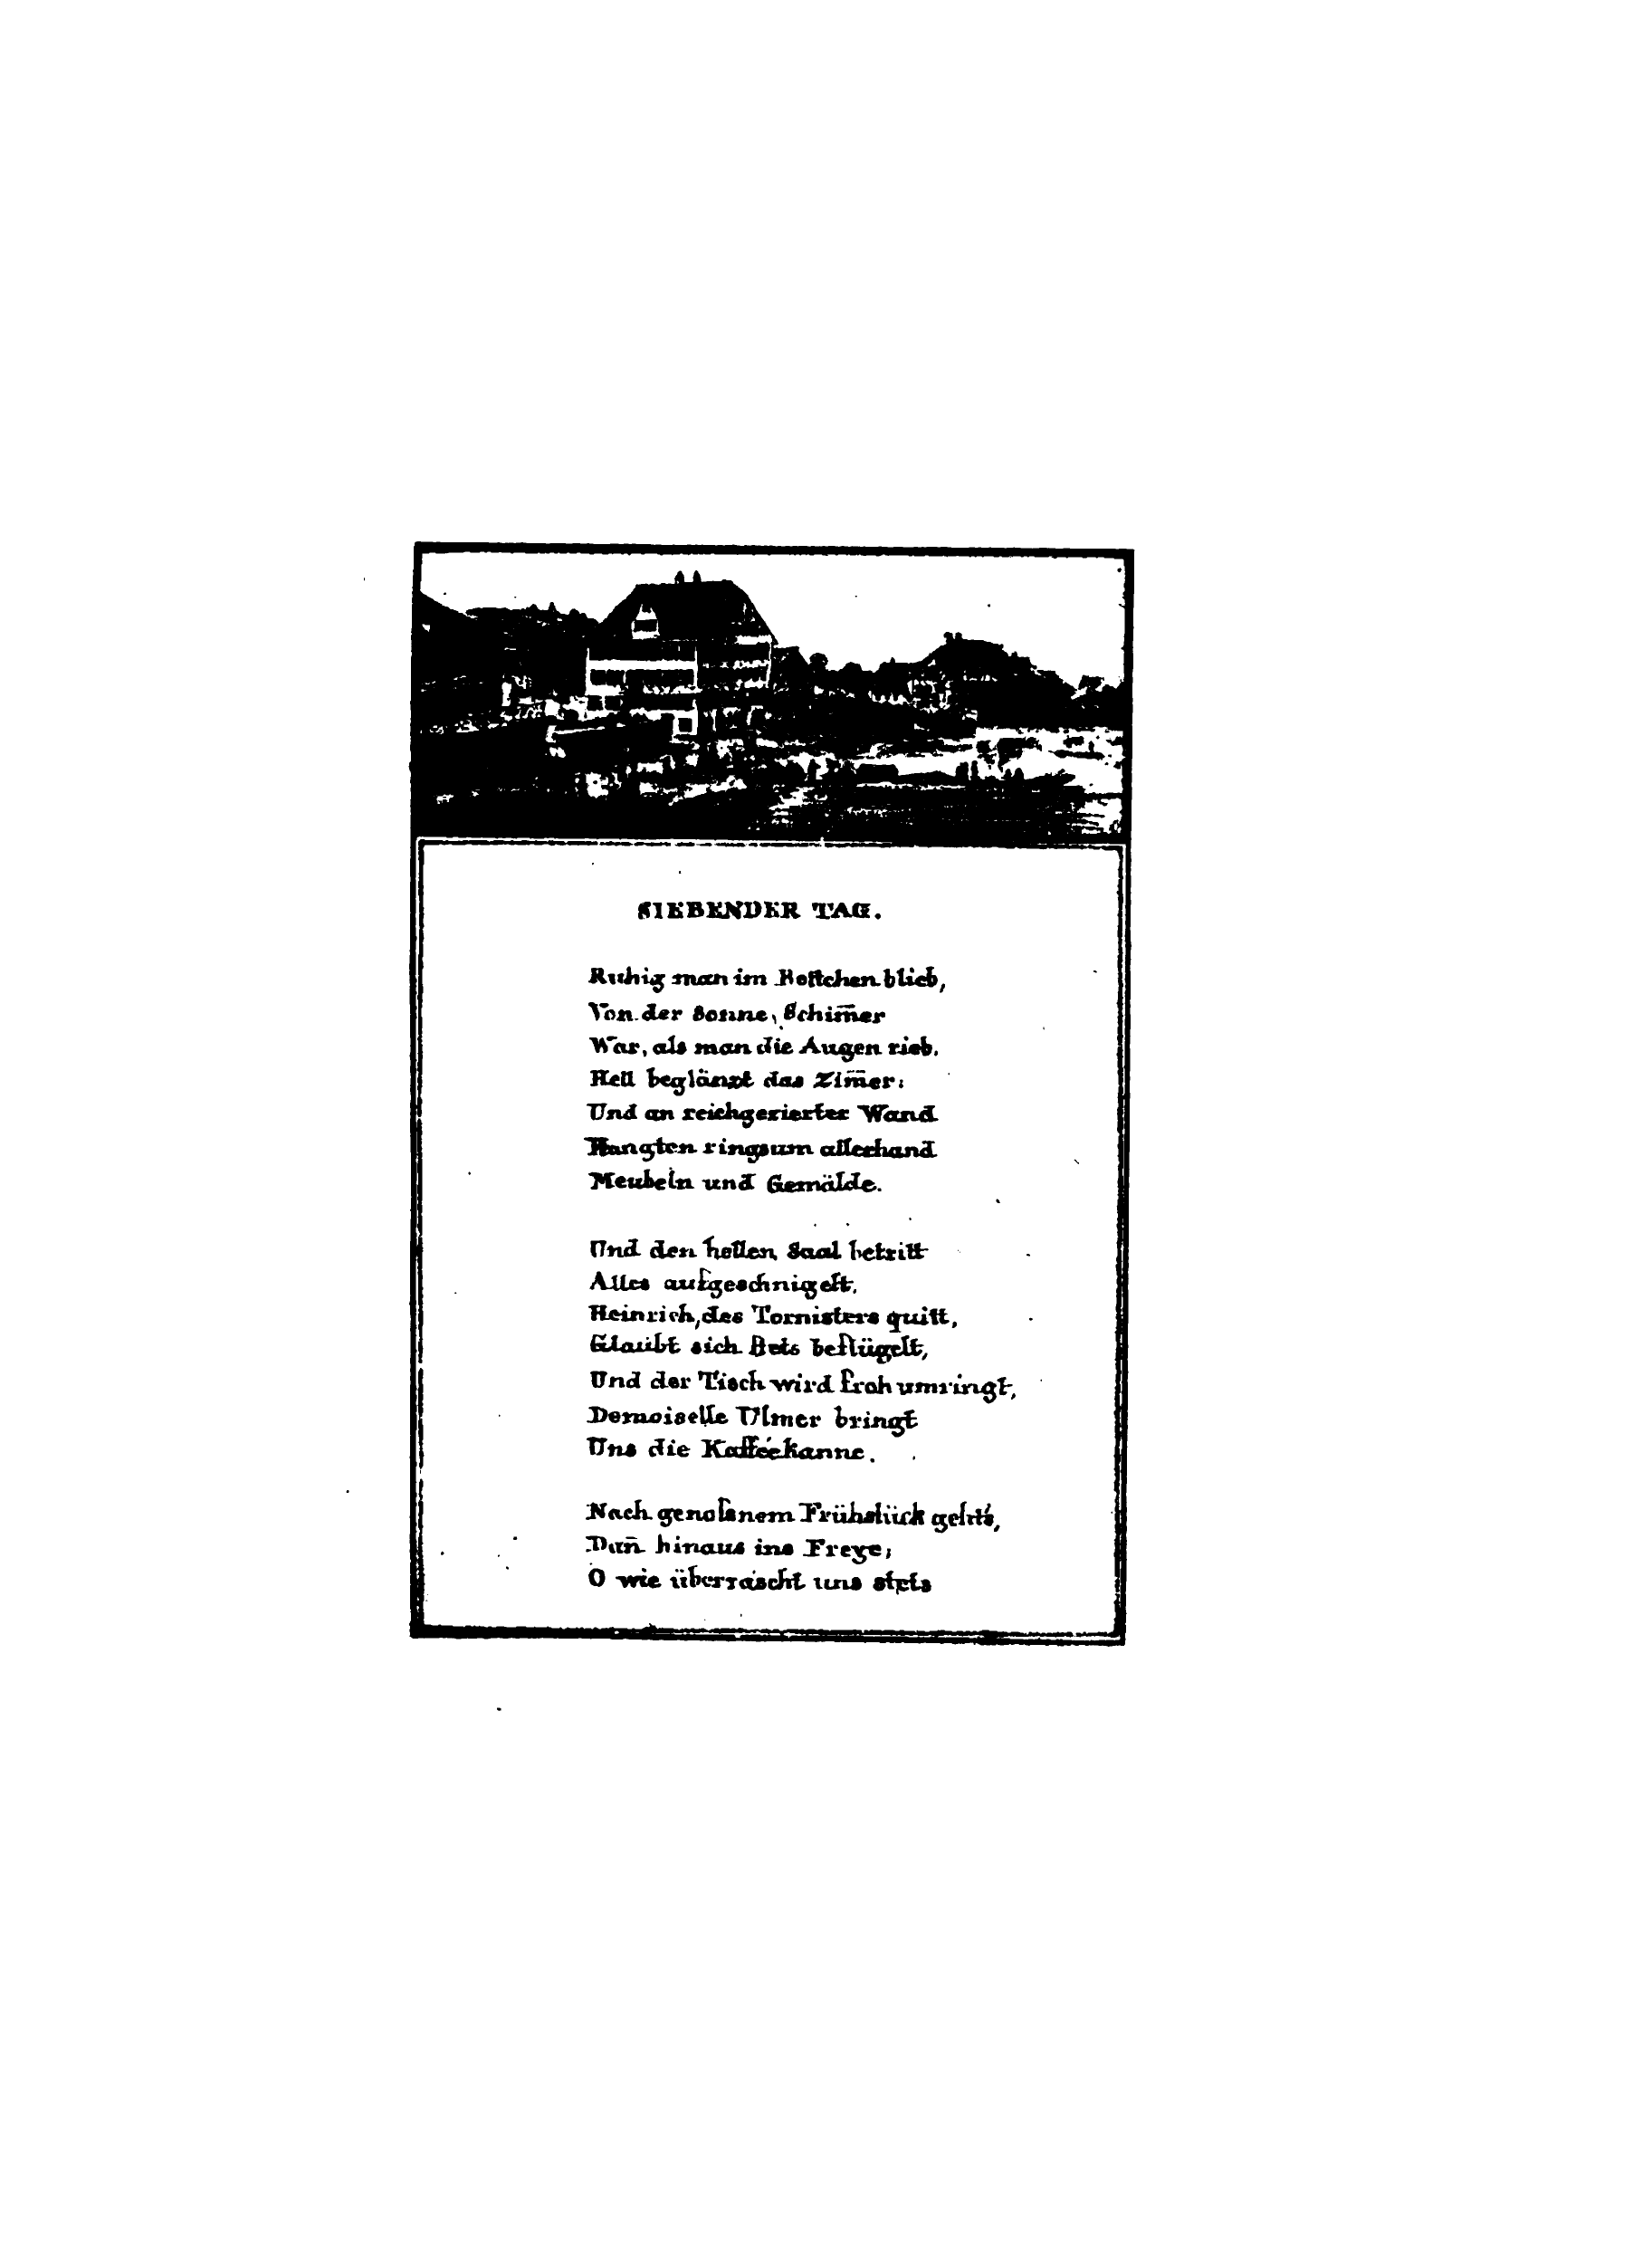 SIEBENDER TAG.
Ruhig man im Bettchen blieb,
Von der Sonne, Schim̅er
War, als man die Augen rieb.
Hell beglänzt das Zim̅er:
Und an reichgezierter Wand
Hangten ringsum allerhand
Meubeln und Gemälde.
Und den hellen Saal betritt
Alles aufgeschnigelt,
Heinrich, des Tornisters quitt,
Glaubt sich stets beflügelt,
Und der Tisch wird froh umringt,
Demoiselle Ulmer bringt
Uns die Kafféekanne.
Nach genoſsnem Frühstück geht's,
Dan̅ hinaus ins Freye;
O wie überrascht uns stets